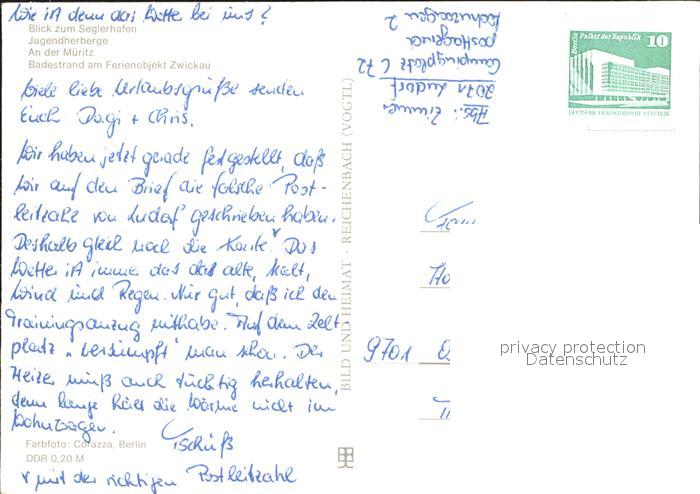 Wie ist denn das Wetter bei uns?
Blick zum Seglerhafen
Jugendherberge
An der Müritz
Badestrand am Ferienobjekt Zwickau
Viele liebe Urlaubsgrüße senden
Euch Dagi + Chris.
Wir haben jetzt gerade festgestellt, daß
wir auf den Brief die falsche Post-
leitzahl von Ludorf geschrieben haben.
Deshalb gleich noch die Karte. Das
Wetter ist immer das alte, kalt,
Wind und Regen. Nur gut, daß ich den
Trainingsanzug mithabe. Auf dem Zelt
platz "versumpft" man schon. Der
Heizer muß auch tüchtig herhalten,
denn lange hält die Wärme nicht im
Wohnwagen.
Tschüß
Farbfoto: Corazza, Berlin
DDR 0,20 M
v mit der richtigen Postleitzahl
BILD UND HEIMAT · REICHENBACH (VOGTL)
Abs.: Zimmer
2071 Ludorf
Campingplatz C 72
Wohnwagen 2
Berlin Palast der Republik
10
DEUTSCHE DEMOKRATISCHE REPUBLIK
9701
privacy protection
Datenschutz